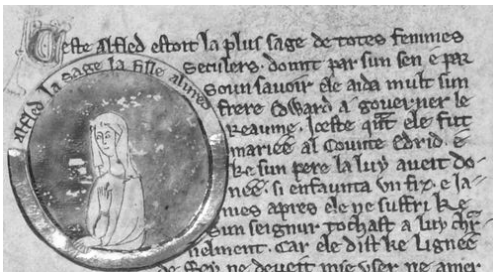 Ceste Alfled estoit la plus sage de totes femmes
seculers. dount par sun sen e par
soun savoir ele aida mult sun
frere Edward a governer le
Reaume. Iceste qant ele fut
mariee al Counte Edrid. e
ke sun pere la luy aveit do-
nee. si enfaunta un fiz. e ja-
mes apres ele ne suffri ke
sun seignur tochast a luy char
nelment. Car ele dist ke Lignee
de Rey ne deveit mie user ne amer
alfled la sage la fille alured